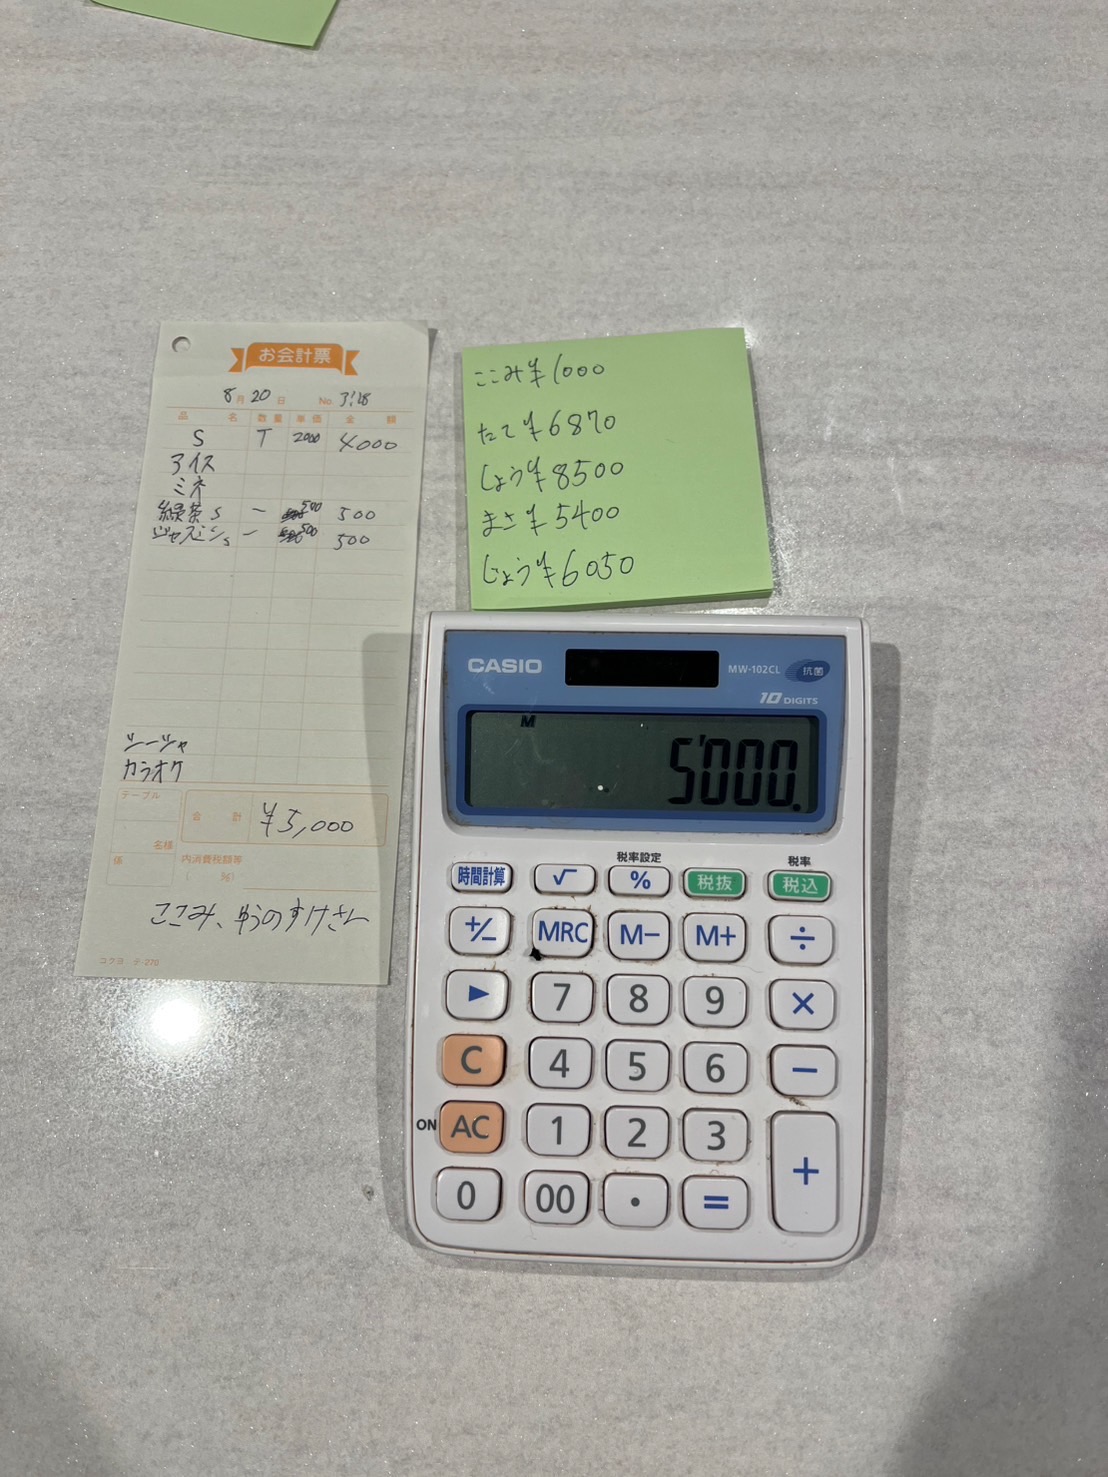 お会計票
8月20日 No. 3:18
品名 数量 単価 金額
S T 2000 4000
アイス
ミネ
緑茶S 一 500 500
ジャスミンS 一 500 500
シーシャ
カラオケ
テーブル
合計 ¥5,000
名様
係
内消費税額等
( %)
ここみ、ゆうのすけさん
コクヨ テ-270
ここみ¥1000
たて¥6870
しょう¥8500
まさ¥5400
じょう¥6050
CASIO
MW-102CL 抗菌
10 DIGITS
M
5'000.
税率設定 税率
時間計算 √ % 税抜 税込
+/− MRC M− M+ ÷
▶ 7 8 9 ×
C 4 5 6 −
ON AC 1 2 3 +
0 00 • =